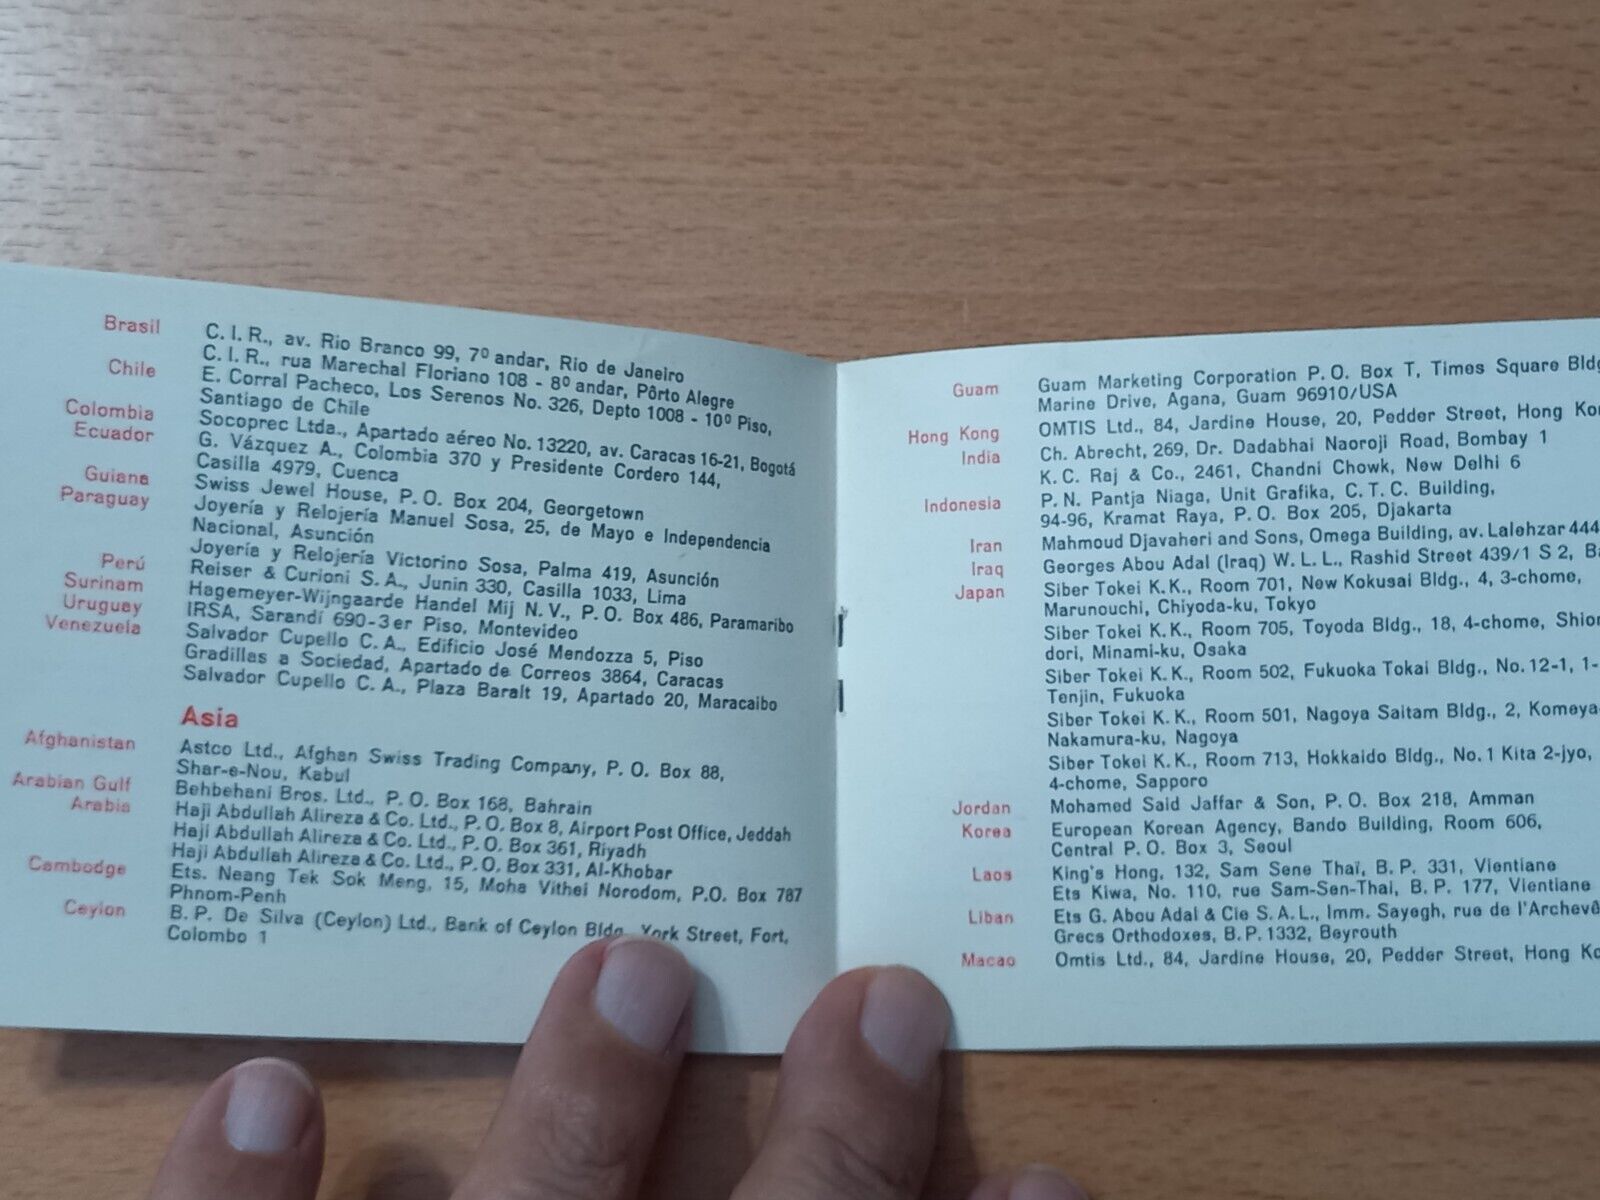 Brasil C. I. R., av. Rio Branco 99, 7º andar, Rio de Janeiro
C. I. R., rua Marechal Floriano 108 - 8º andar, Pôrto Alegre
Chile E. Corral Pacheco, Los Serenos No. 326, Depto 1008 - 10º Piso,
Santiago de Chile
Colombia Socoprec Ltda., Apartado aéreo No. 13220, av. Caracas 16-21, Bogotá
Ecuador G. Vázquez A., Colombia 370 y Presidente Cordero 144,
Casilla 4979, Cuenca
Guiana Swiss Jewel House, P. O. Box 204, Georgetown
Paraguay Joyería y Relojería Manuel Sosa, 25, de Mayo e Independencia
Nacional, Asunción
Joyería y Relojería Victorino Sosa, Palma 419, Asunción
Perú Reiser & Curioni S. A., Junin 330, Casilla 1033, Lima
Surinam Hagemeyer-Wijngaarde Handel Mij N. V., P. O. Box 486, Paramaribo
Uruguay IRSA, Sarandí 690-3 er Piso, Montevideo
Venezuela Salvador Cupello C. A., Edificio José Mendozza 5, Piso
Gradillas a Sociedad, Apartado de Correos 3864, Caracas
Salvador Cupello C. A., Plaza Baralt 19, Apartado 20, Maracaibo
Asia
Afghanistan Astco Ltd., Afghan Swiss Trading Company, P. O. Box 88,
Shar-e-Nou, Kabul
Arabian Gulf Behbehani Bros. Ltd., P. O. Box 168, Bahrain
Arabia Haji Abdullah Alireza & Co. Ltd., P. O. Box 8, Airport Post Office, Jeddah
Haji Abdullah Alireza & Co. Ltd., P. O. Box 361, Riyadh
Haji Abdullah Alireza & Co. Ltd., P. O. Box 331, Al-Khobar
Cambodge Ets. Neang Tek Sok Meng, 15, Moha Vithei Norodom, P.O. Box 787
Phnom-Penh
Ceylon B. P. De Silva (Ceylon) Ltd., Bank of Ceylon Bldg., York Street, Fort,
Colombo 1
Guam Guam Marketing Corporation P. O. Box T, Times Square Bldg
Marine Drive, Agana, Guam 96910/USA
Hong Kong OMTIS Ltd., 84, Jardine House, 20, Pedder Street, Hong Ko
India Ch. Abrecht, 269, Dr. Dadabhai Naoroji Road, Bombay 1
K. C. Raj & Co., 2461, Chandni Chowk, New Delhi 6
Indonesia P. N. Pantja Niaga, Unit Grafika, C. T. C. Building,
94-96, Kramat Raya, P. O. Box 205, Djakarta
Iran Mahmoud Djavaheri and Sons, Omega Building, av. Lalehzar 444
Iraq Georges Abou Adal (Iraq) W. L. L., Rashid Street 439/1 S 2, Ba
Japan Siber Tokei K. K., Room 701, New Kokusai Bldg., 4, 3-chome,
Marunouchi, Chiyoda-ku, Tokyo
Siber Tokei K. K., Room 705, Toyoda Bldg., 18, 4-chome, Shio
dori, Minami-ku, Osaka
Siber Tokei K. K., Room 502, Fukuoka Tokai Bldg., No. 12-1, 1-
Tenjin, Fukuoka
Siber Tokei K. K., Room 501, Nagoya Saitam Bldg., 2, Komeya
Nakamura-ku, Nagoya
Siber Tokei K. K., Room 713, Hokkaido Bldg., No. 1 Kita 2-jyo,
4-chome, Sapporo
Jordan Mohamed Said Jaffar & Son, P. O. Box 218, Amman
Korea European Korean Agency, Bando Building, Room 606,
Central P. O. Box 3, Seoul
Laos King's Hong, 132, Sam Sene Thaï, B. P. 331, Vientiane
Ets Kiwa, No. 110, rue Sam-Sen-Thai, B. P. 177, Vientiane
Liban Ets G. Abou Adal & Cie S. A. L., Imm. Sayegh, rue de l'Archevê
Grecs Orthodoxes, B. P. 1332, Beyrouth
Macao Omtis Ltd., 84, Jardine House, 20, Pedder Street, Hong Ko